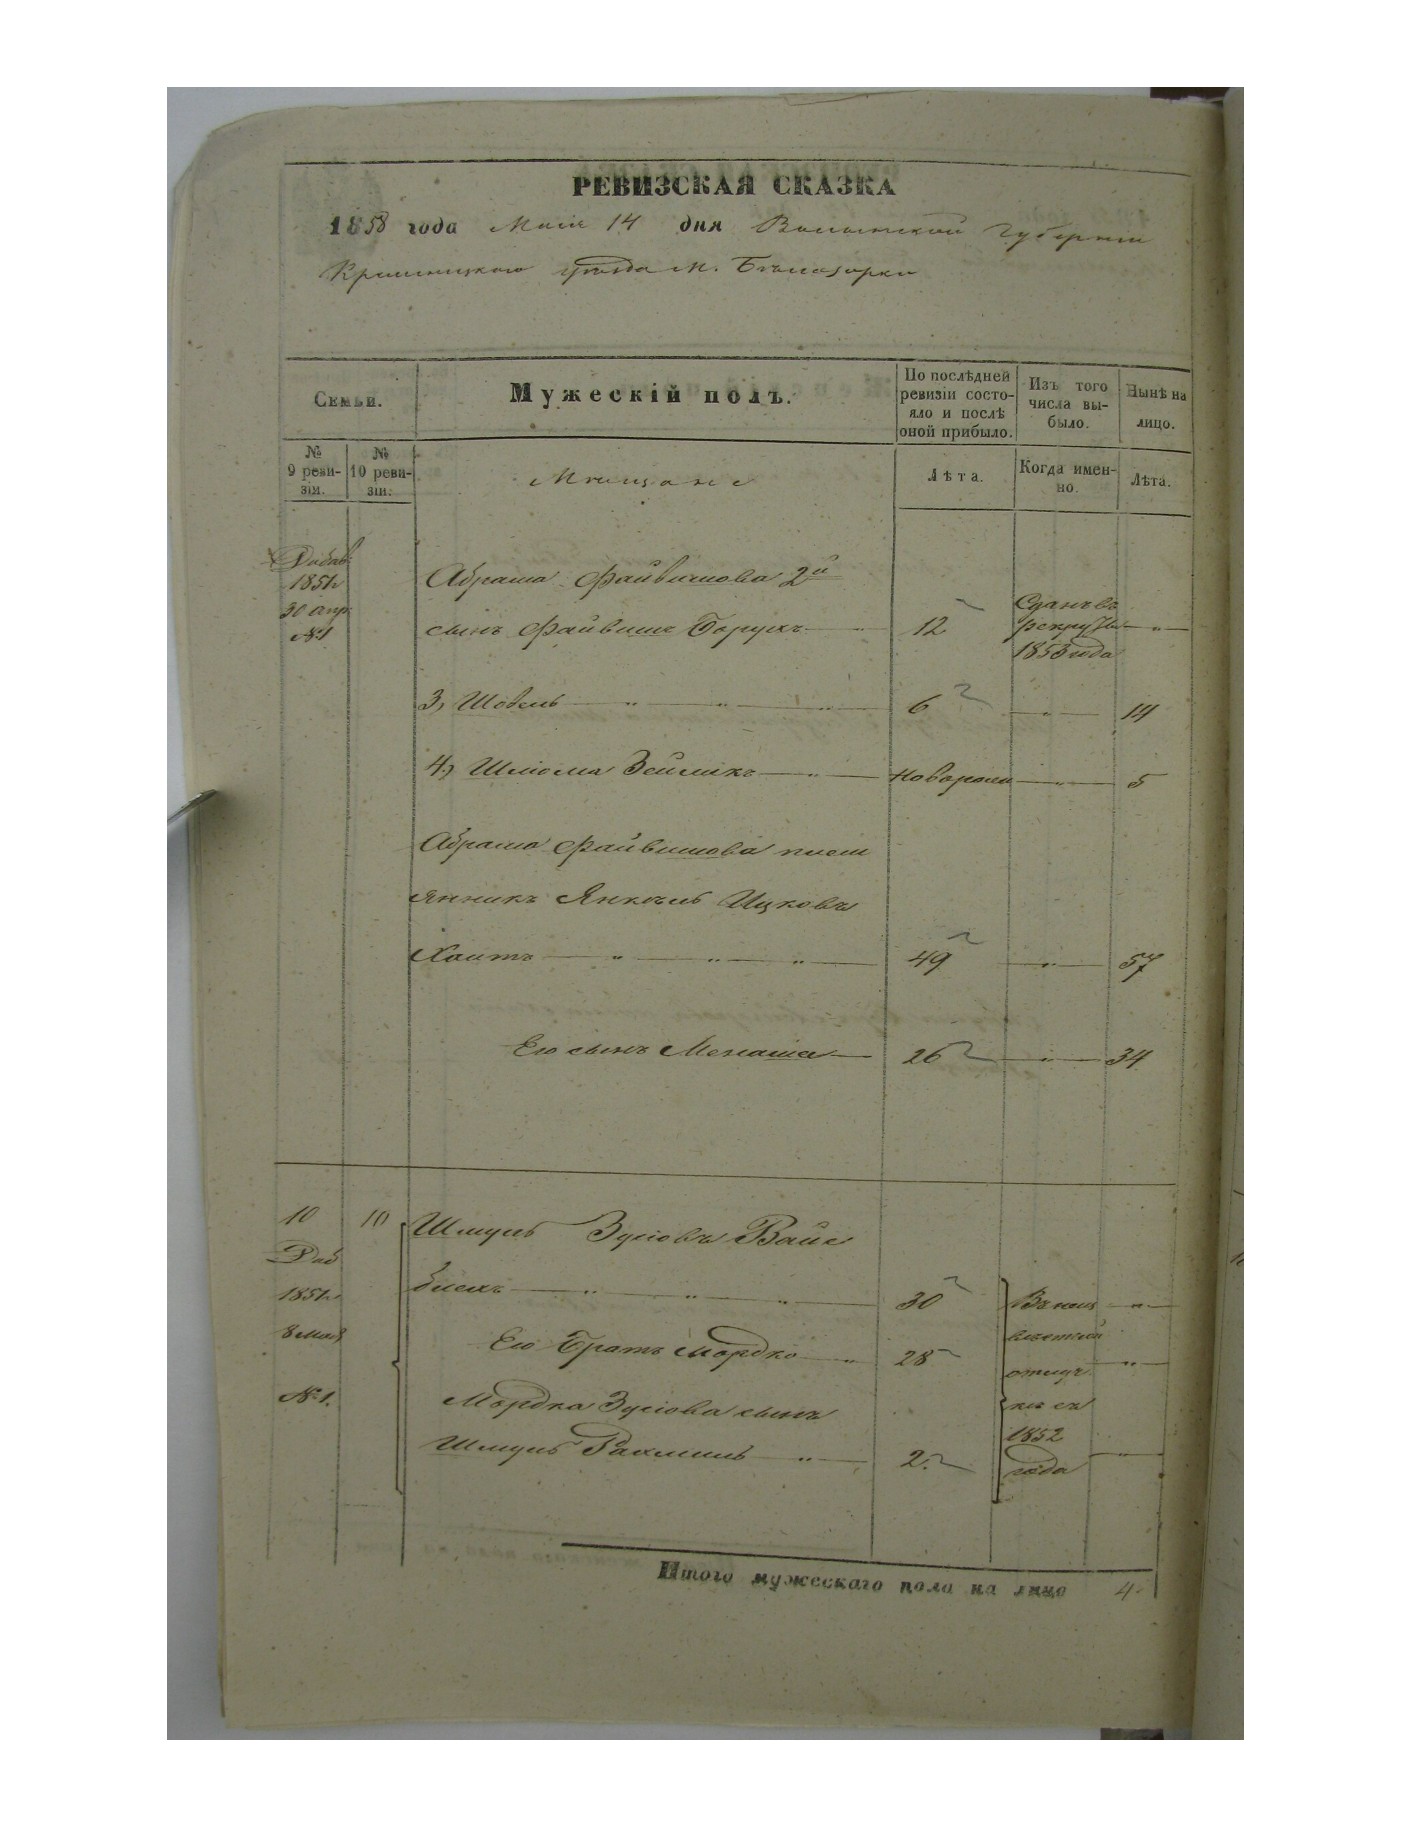 РЕВИЗСКАЯ СКАЗКА
1858 года Маія 14 дня Волынской Губерніи
Кременецкаго уѣзда м. Бѣлозорки
Семьи.
Мужескій полъ.
По послѣдней ревизіи состояло и послѣ оной прибыло.
Изъ того числа выбыло.
Нынѣ на лицо.
№ 9 ревизіи.
№ 10 ревизіи.
Мѣщане
Лѣта.
Когда именно.
Лѣта.
Добав. 1851 г. 30 апр. №1
Абрама Файвишова 2й
сынъ Файвишъ Борухъ — „ 12 Сданъ въ рекруты 1853 года — „ —
3, Шовель — „ — „ — „ — 6 — „ — 14
4, Шліома Зейликъ — „ — Новорож — „ — 5
Абрама Файвишова плем
янникъ Янкель Ицковъ
Хаитъ — „ — „ — „ — 49 — „ — 57
Его сынъ Менаша — 26 — „ — 34
10 Доб 1851 г. 8 мая №1.
10
Шмуль Зусіовъ Вайс
блехъ — „ — „ — „ — 30 — „ —
Его Братъ Мордко — „ 28 — „ —
Мордка Зусіова сынъ
Шмуль Рахмиль — „ — 2. — „ —
отлуч
ке съ
1852
года
Итого мужескаго пола на лицо 4.